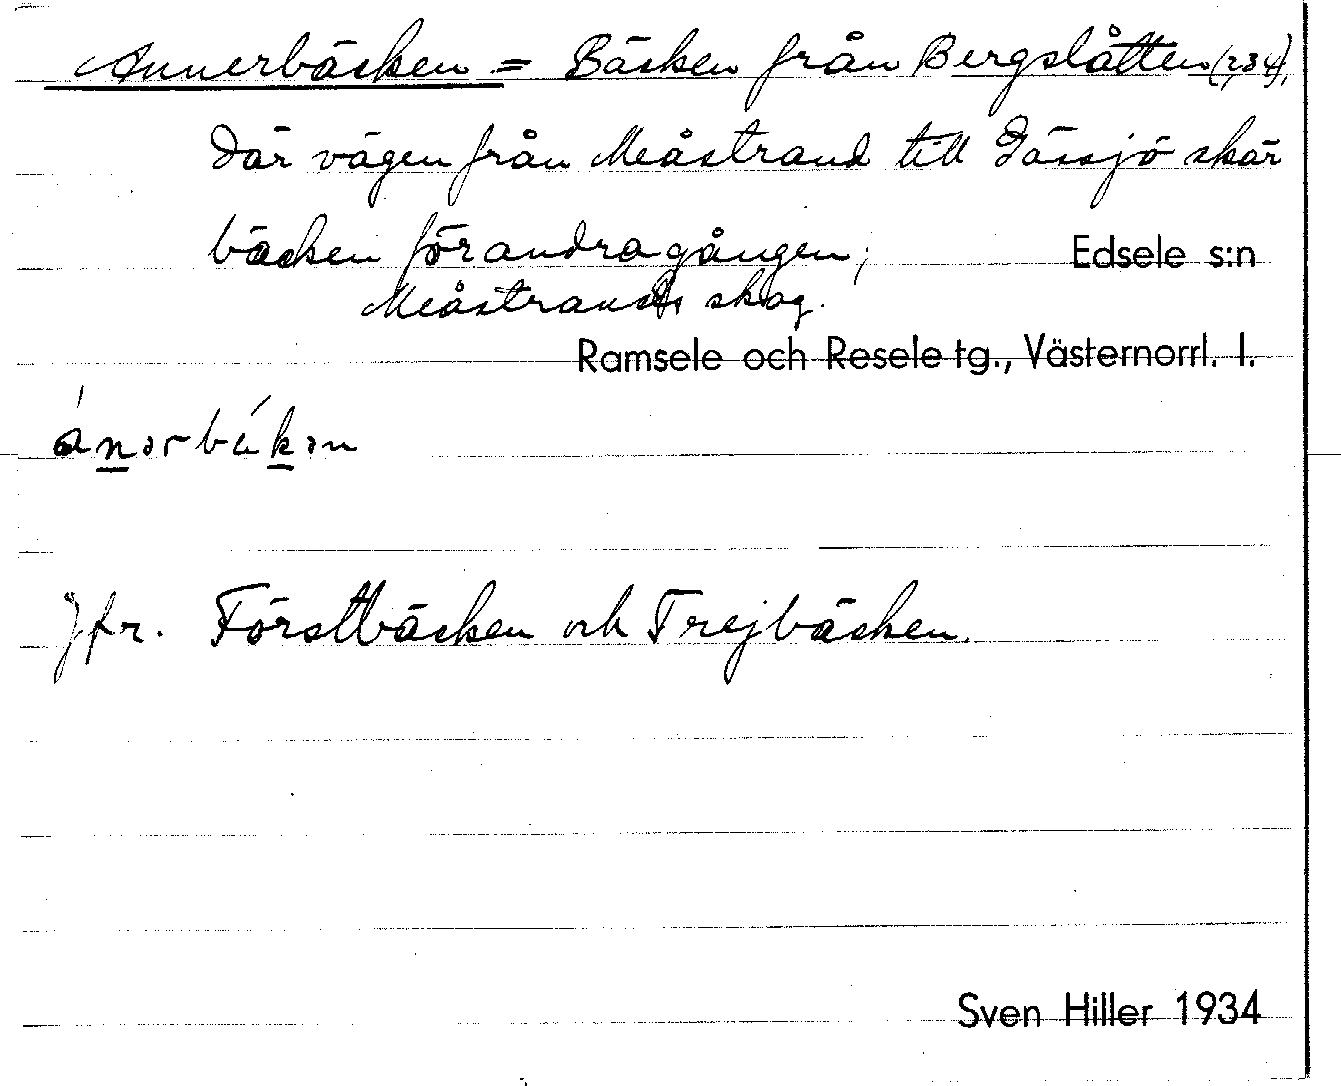 Annerbäcken = Bäcken från Bergslåtten (2,34),
där vägen från Meåstrand till Jässjö skär
bäcken för andra gången; Edsele s:n
Meåstrands skog.
Ramsele och Resele tg., Västernorrl. l.
ánərbǽkən
Jfr. Förstbäcken och Trejbäcken.
Sven Hiller 1934